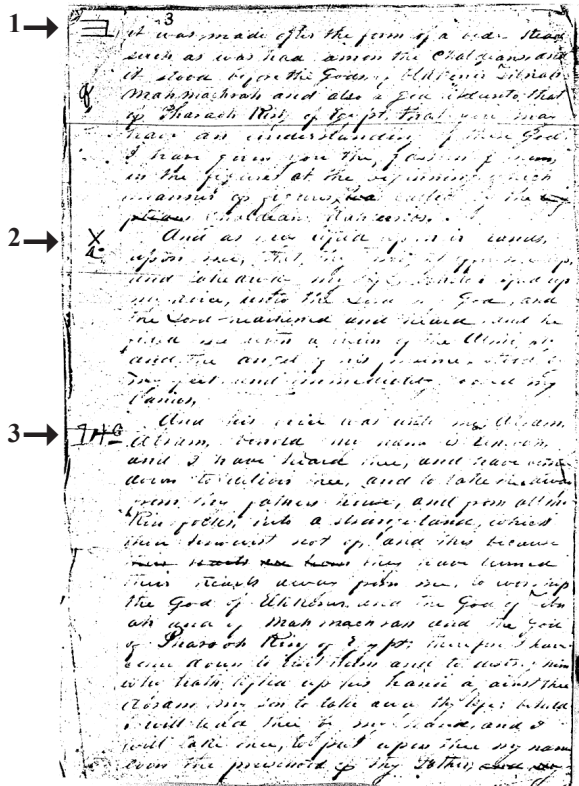 3
1 it was made after the form of a bedstead
such as was had among the Chaldeans and
it stood before the Gods of Elkkener Zibnah
Mahmachrah and also a God like unto that
of Pharaoh King of Egypt that you may
have an understanding of these Gods
I have given you the fassion of them
in the figures at the beginning which
manner of figures is called by the
Chaldeans
2 And as they lifted up their hands
upon me, that they might offer me up
and take away my life, behold I lifted up
my voice, unto the Lord my God, and
the Lord hearkened and heard and he
filled me with a vision of the Almighty
and the angel of his presence stood by
my feet and immediately loosed my
bands,
3 And his voice was unto me Abram
Abram, behold my name is
and I have heard thee, and have come
down to deliver thee, and to take thee away
from thy fathers house, and from all thy
kin folks, into a strange land, which
thou knowest not of, and this because
they have turned
their hearts away from me, to worship
the God of Elkkener and the God of Zibn
ah and of Mahmachrah and the God
of Pharaoh King of Egypt therefore I have
come down to visit them and to destroy him
who hath lifted up his hand against thee
Abram my son to take away thy life: behold
I will lead thee by my hand, and I
will take thee, to put upon thee my name
even the priesthood of thy Father,